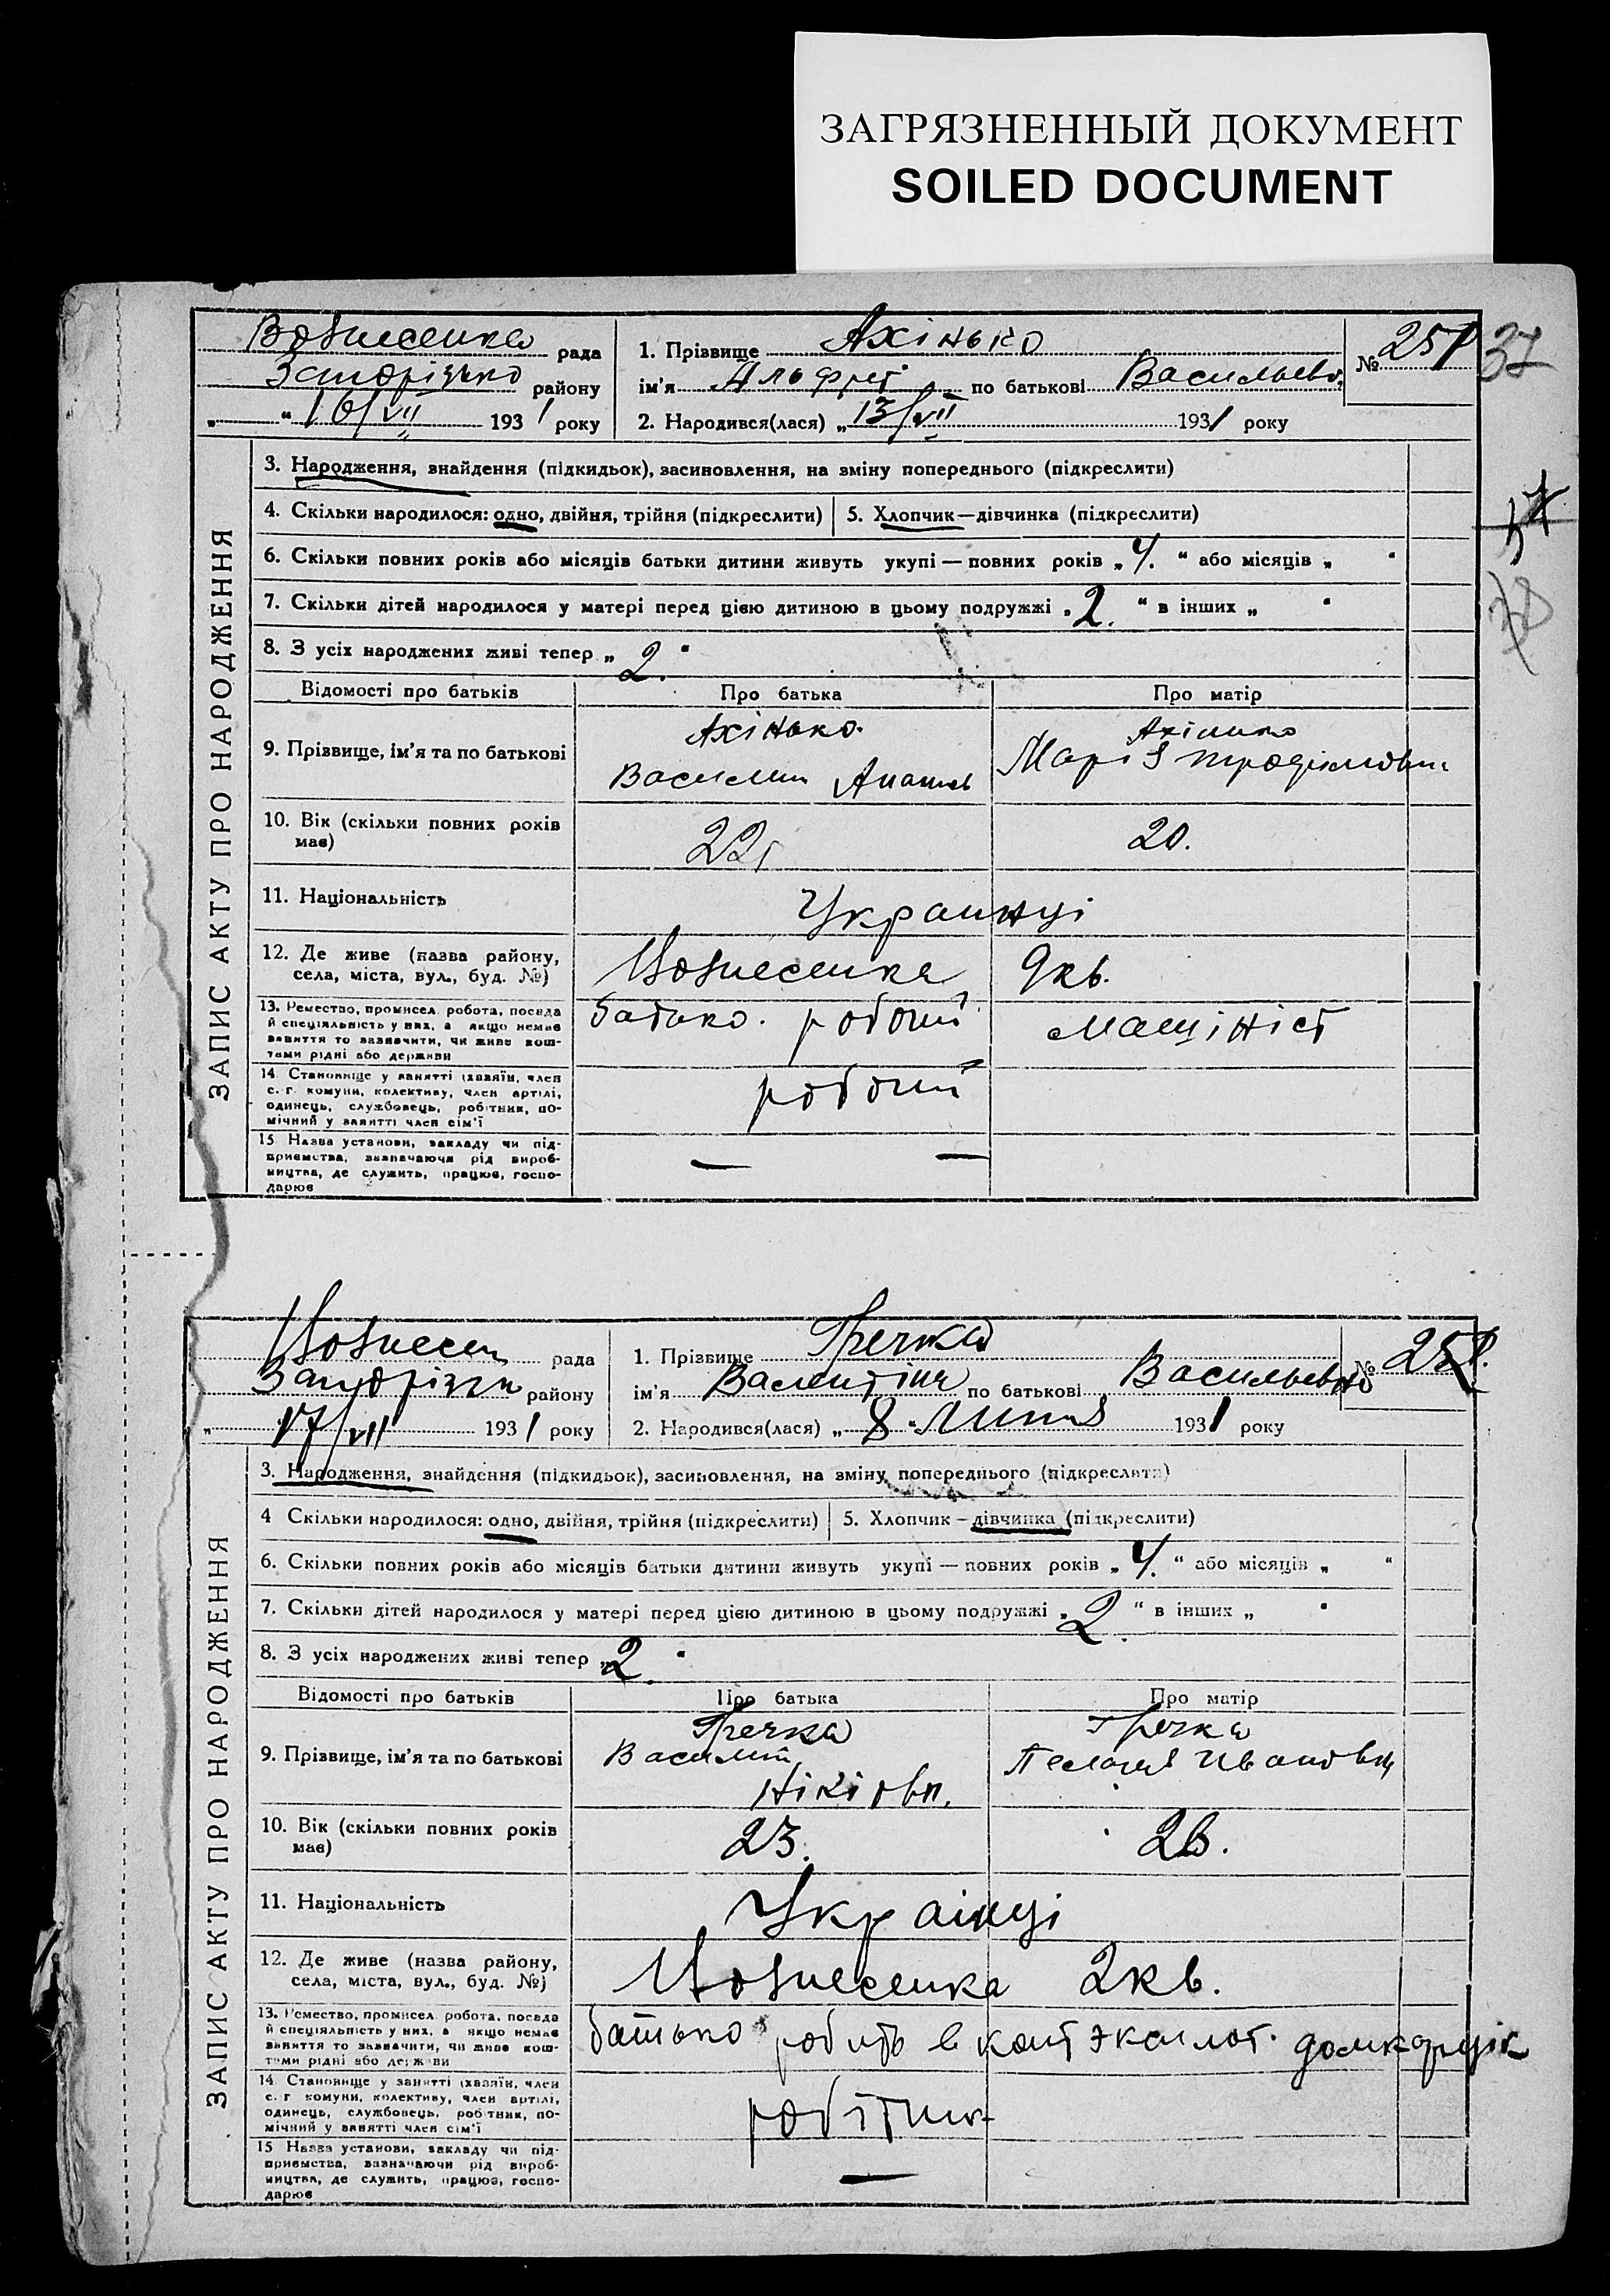 ЗАГРЯЗНЕННЫЙ ДОКУМЕНТ
SOILED DOCUMENT
Вознесенка рада
Запорізько району
„ “ 16/VII 1931 року
1. Прізвище Ахінько
ім'я Альфред по батькові Васильев.
2. Народився(лася) „13/VII 1931 року
№ 257
37
ЗАПИС АКТУ ПРО НАРОДЖЕННЯ
3. Народження, знайдення (підкидьок), засиновлення, на зміну попереднього (підкреслити)
4. Скільки народилося: одно, двійня, трійня (підкреслити) 5. Хлопчик—дівчинка (підкреслити)
6. Скільки повних років або місяців батьки дитини живуть укупі — повних років „ 4. “ або місяців „ “
7. Скільки дітей народилося у матері перед цією дитиною в цьому подружжі „ 2. “ в інших „ “
8. З усіх народжених живі тепер „ 2. “
Відомості про батьків Про батька Про матір
9. Прізвище, ім'я та по батькові
Ахінько
Василий
Ахинько
Марія
10. Вік (скільки повних років має) 22 20.
11. Національність Украинці
12. Де живе (назва району, села, міста, вул., буд. №) Вознесенка 9кв.
13. Ремество, промисел. робота, посада й спеціяльність у них, а якщо немає заняття то зазначити, чи живе коштами рідні або держави
батько. робочий машініст
14. Становище у занятті (хазяїн, член с.-г. комуни, колективу, член артілі, одинець, службовець, робітник, помічний у занятті член сім'ї
робочий
15. Назва установи, закладу чи підприємства, зазначаючи рід виробництва, де служить, працює, господарює
— —
Вознесен рада
Запорізьк району
„ 17/VII 1931 року
1. Прізвище Гречка
ім'я Валентіна по батькові Васильевно
2. Народився(лася) „ 8 “ Липня 1931 року
№ 258.
ЗАПИС АКТУ ПРО НАРОДЖЕННЯ
3. Народження, знайдення (підкидьок), засиновлення, на зміну попереднього (підкреслити)
4 Скільки народилося: одно, двійня, трійня (підкреслити) 5. Хлопчик – дівчинка (підкреслити)
6. Скільки повних років або місяців батьки дитини живуть укупі — повних років „ 4. “ або місяців „ “
7. Скільки дітей народилося у матері перед цією дитиною в цьому подружжі „ 2. “ в інших „ “
8. З усіх народжених живі тепер „ 2. “
Відомості про батьків Про батька Про матір
9. Прізвище, ім'я та по батькові
Гречка
Василий
Гречка
Пелагея Ивановн
10. Вік (скільки повних років має) 23.
11. Національність Українці
12. Де живе (назва району, села, міста, вул., буд. №) Вознесенка 2кв.
13. Ремество, промисел. робота, посада й спеціяльність у них, а якщо немає заняття то зазначити, чи живе коштами рідні або держави
батько робить в
14. Становище у занятті (хазяїн, член с.-г. комуни, колективу, член артілі, одинець, службовець, робітник, помічний у занятті член сім'ї
робітник
15 Назва установи, закладу чи підприємства, зазначаючи рід виробництва, де служить, працює, господарює
—